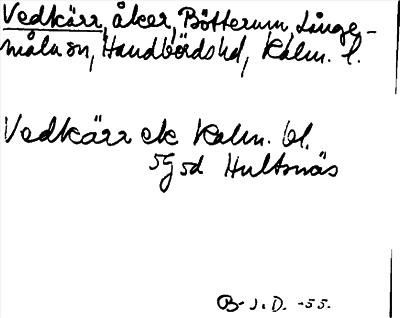 Vedkärr, åker, Bötterum, Långe-
måla sn, Handbörds hd, Kalm. l.
Vedkärr ek Kalm. bl.
5G 5d Hultsnäs
B-J.D. -55.